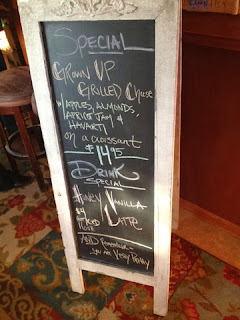 SPECIAL
GROWN UP
GRILLED Cheese
w/ APPLES, ALMONDS,
APRICOT JAM &
HAVARTI
on a croissant
$14.95
DRINK
SPECIAL
HONEY VANILLA
$4 ICED LATTE
AND Remember-
you are Very Pretty